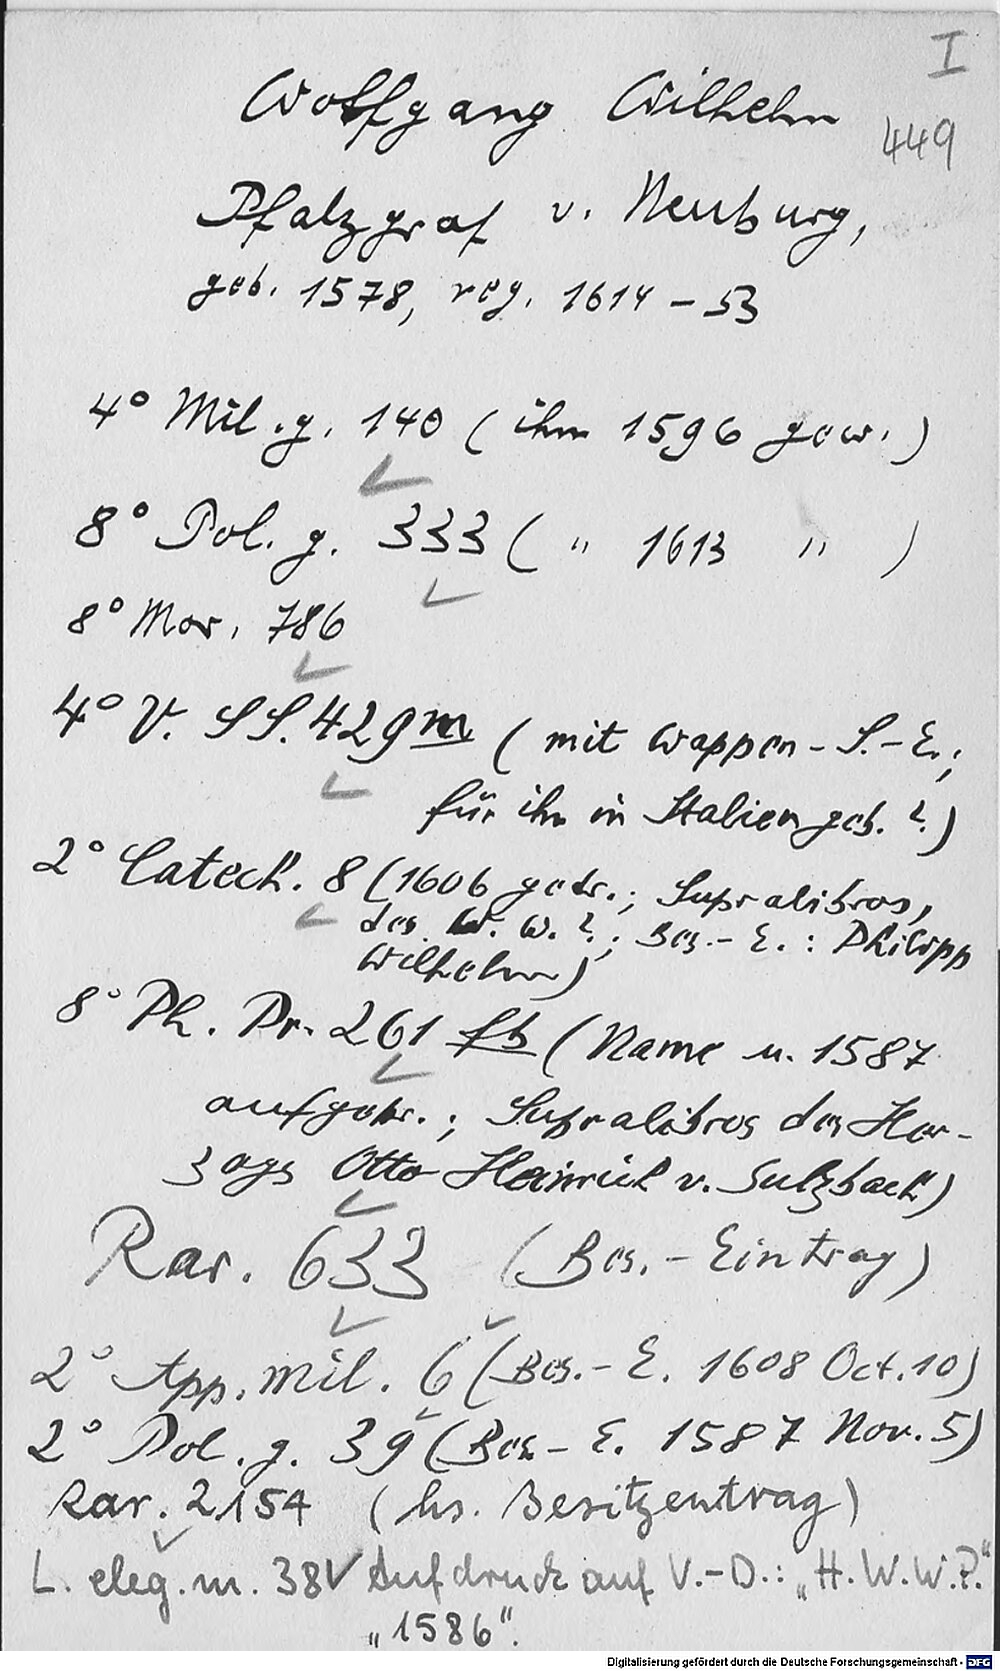 I
Wolfgang Wilhelm
449
Pfalzgraf v. Neuburg,
geb. 1578, reg. 1614 - 53
4° Mil. g. 140 (ihm 1596 gew.)
8° Pol. g. 333 ( " 1613 " )
8° Mor. 786
4° V. SS. 429m (mit Wappen-S.-E.;
für ihn in Italien geb. ?.)
2° Catech. 8 (1606 gedr.; Supralibros,
des W. W.?.; Bes.-E.: Philipp
Wilhelm)
8° Ph. Pr. 261 fb (Name u. 1587
aufgedr.; Supralibros des Her-
zogs Otto Heinrich v. Sulzbach)
Rar. 633 (Bes.-Eintrag)
2° App. mil. 6 (Bes.-E. 1608 Oct. 10)
2° Pol. g. 39 (Bes.-E. 1587 Nov. 5)
Rar. 2154 (hs. Besitzeintrag)
L. eleg. m. 38 Aufdruck auf V.-D.: „H.W.W.P."
„1586".
Digitalisierung gefördert durch die Deutsche Forschungsgemeinschaft - DFG